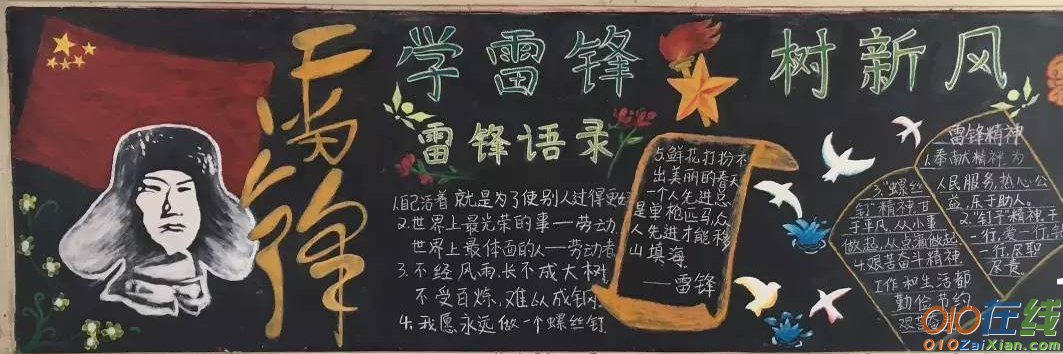 雷锋
学雷锋 树新风
雷锋语录
1.自己活着就是为了使别人过得更
2.世界上最光荣的事——劳动
世界上最体面的人——劳动者
3.不经风雨,长不成大树
不受百炼,难以成钢
4.我愿永远做一个螺丝钉
5.鲜花打扮不
出美丽的春天
一个人先进总
是单枪匹马,众
人先进才能移
山填海
——雷锋
雷锋精神
1.奉献精神为
人民服务,热心公
益,乐于助人。
2."钉子"精神,干
一行,爱一行,
一行,尽职
尽责。
3."螺丝
钉"精神甘
于平凡,从小事
做起,从点滴做起
4.艰苦奋斗精神
工作和生活都
勤俭节约
艰苦奋
010在线
010ZaiXian.com